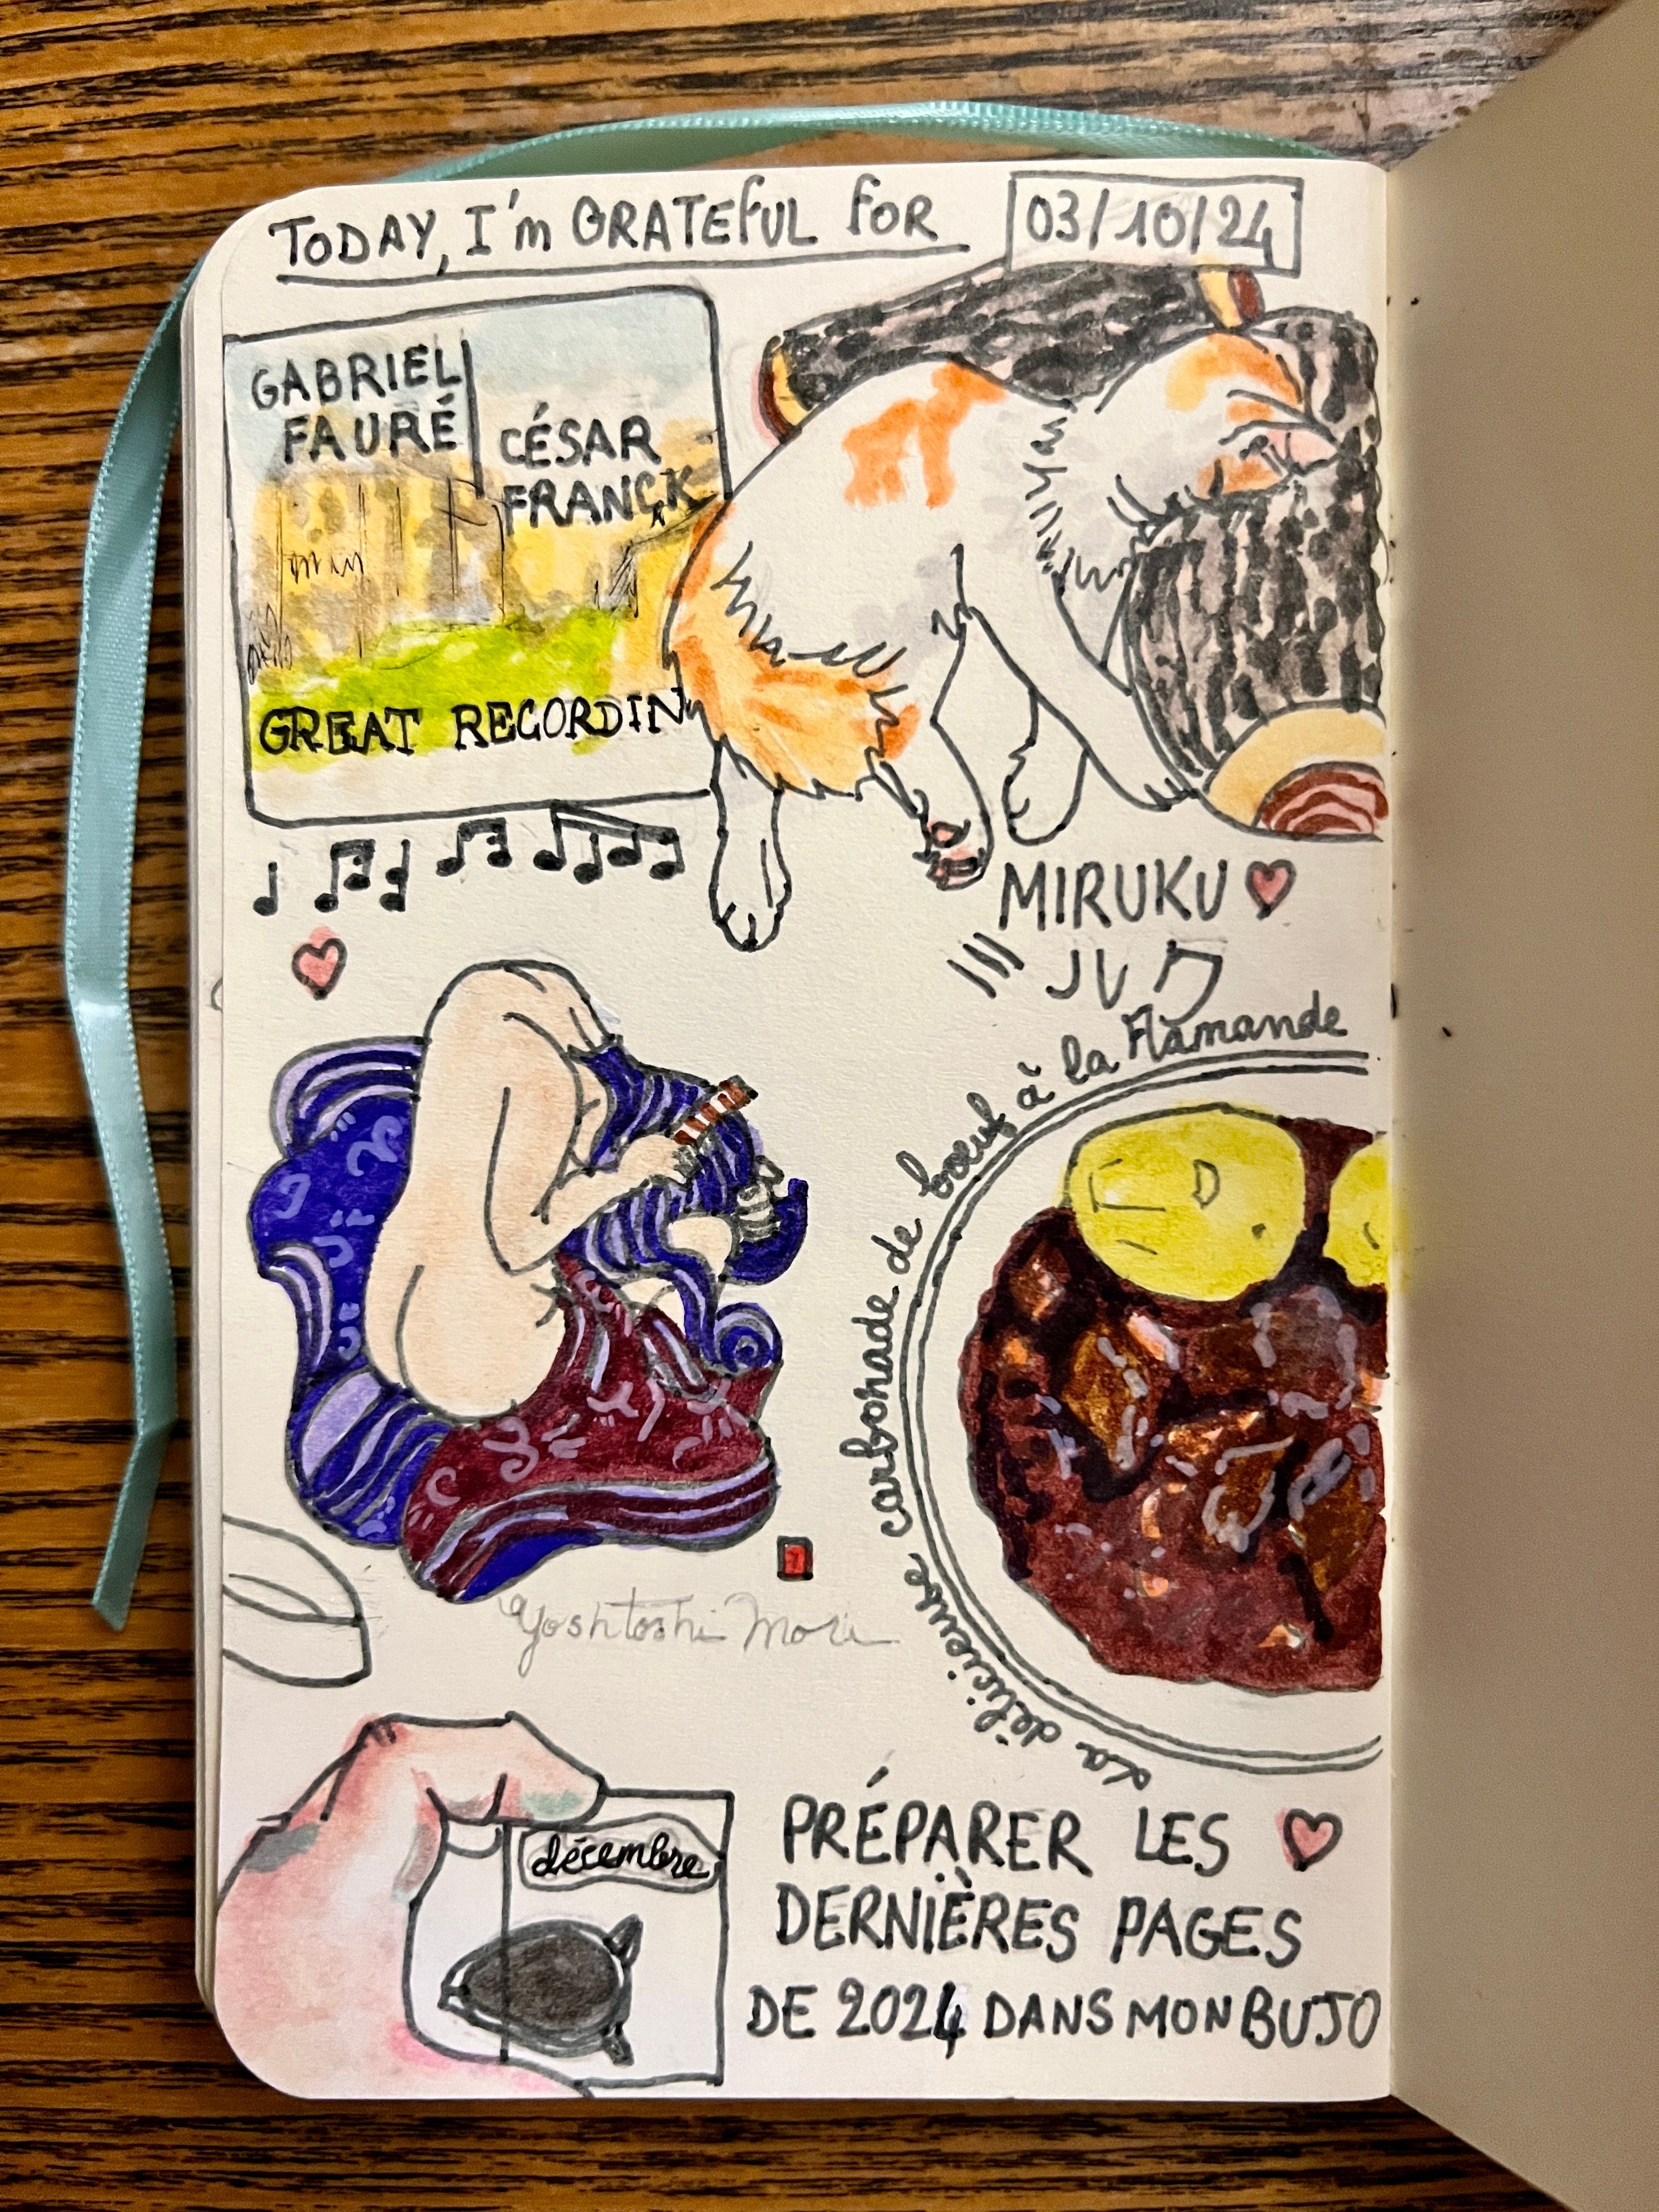 TODAY, I'm GRATEFUL FOR
03/10/24
GABRIEL
FAURÉ
CÉSAR
FRANCK
GREAT RECORDIN
MIRUKU
ミルク
La délicieuse carbonade de bœuf à la Flamande
Yoshtoshi Mori
décembre
PRÉPARER LES
DERNIÈRES PAGES
DE 2024 DANS MON BUJO